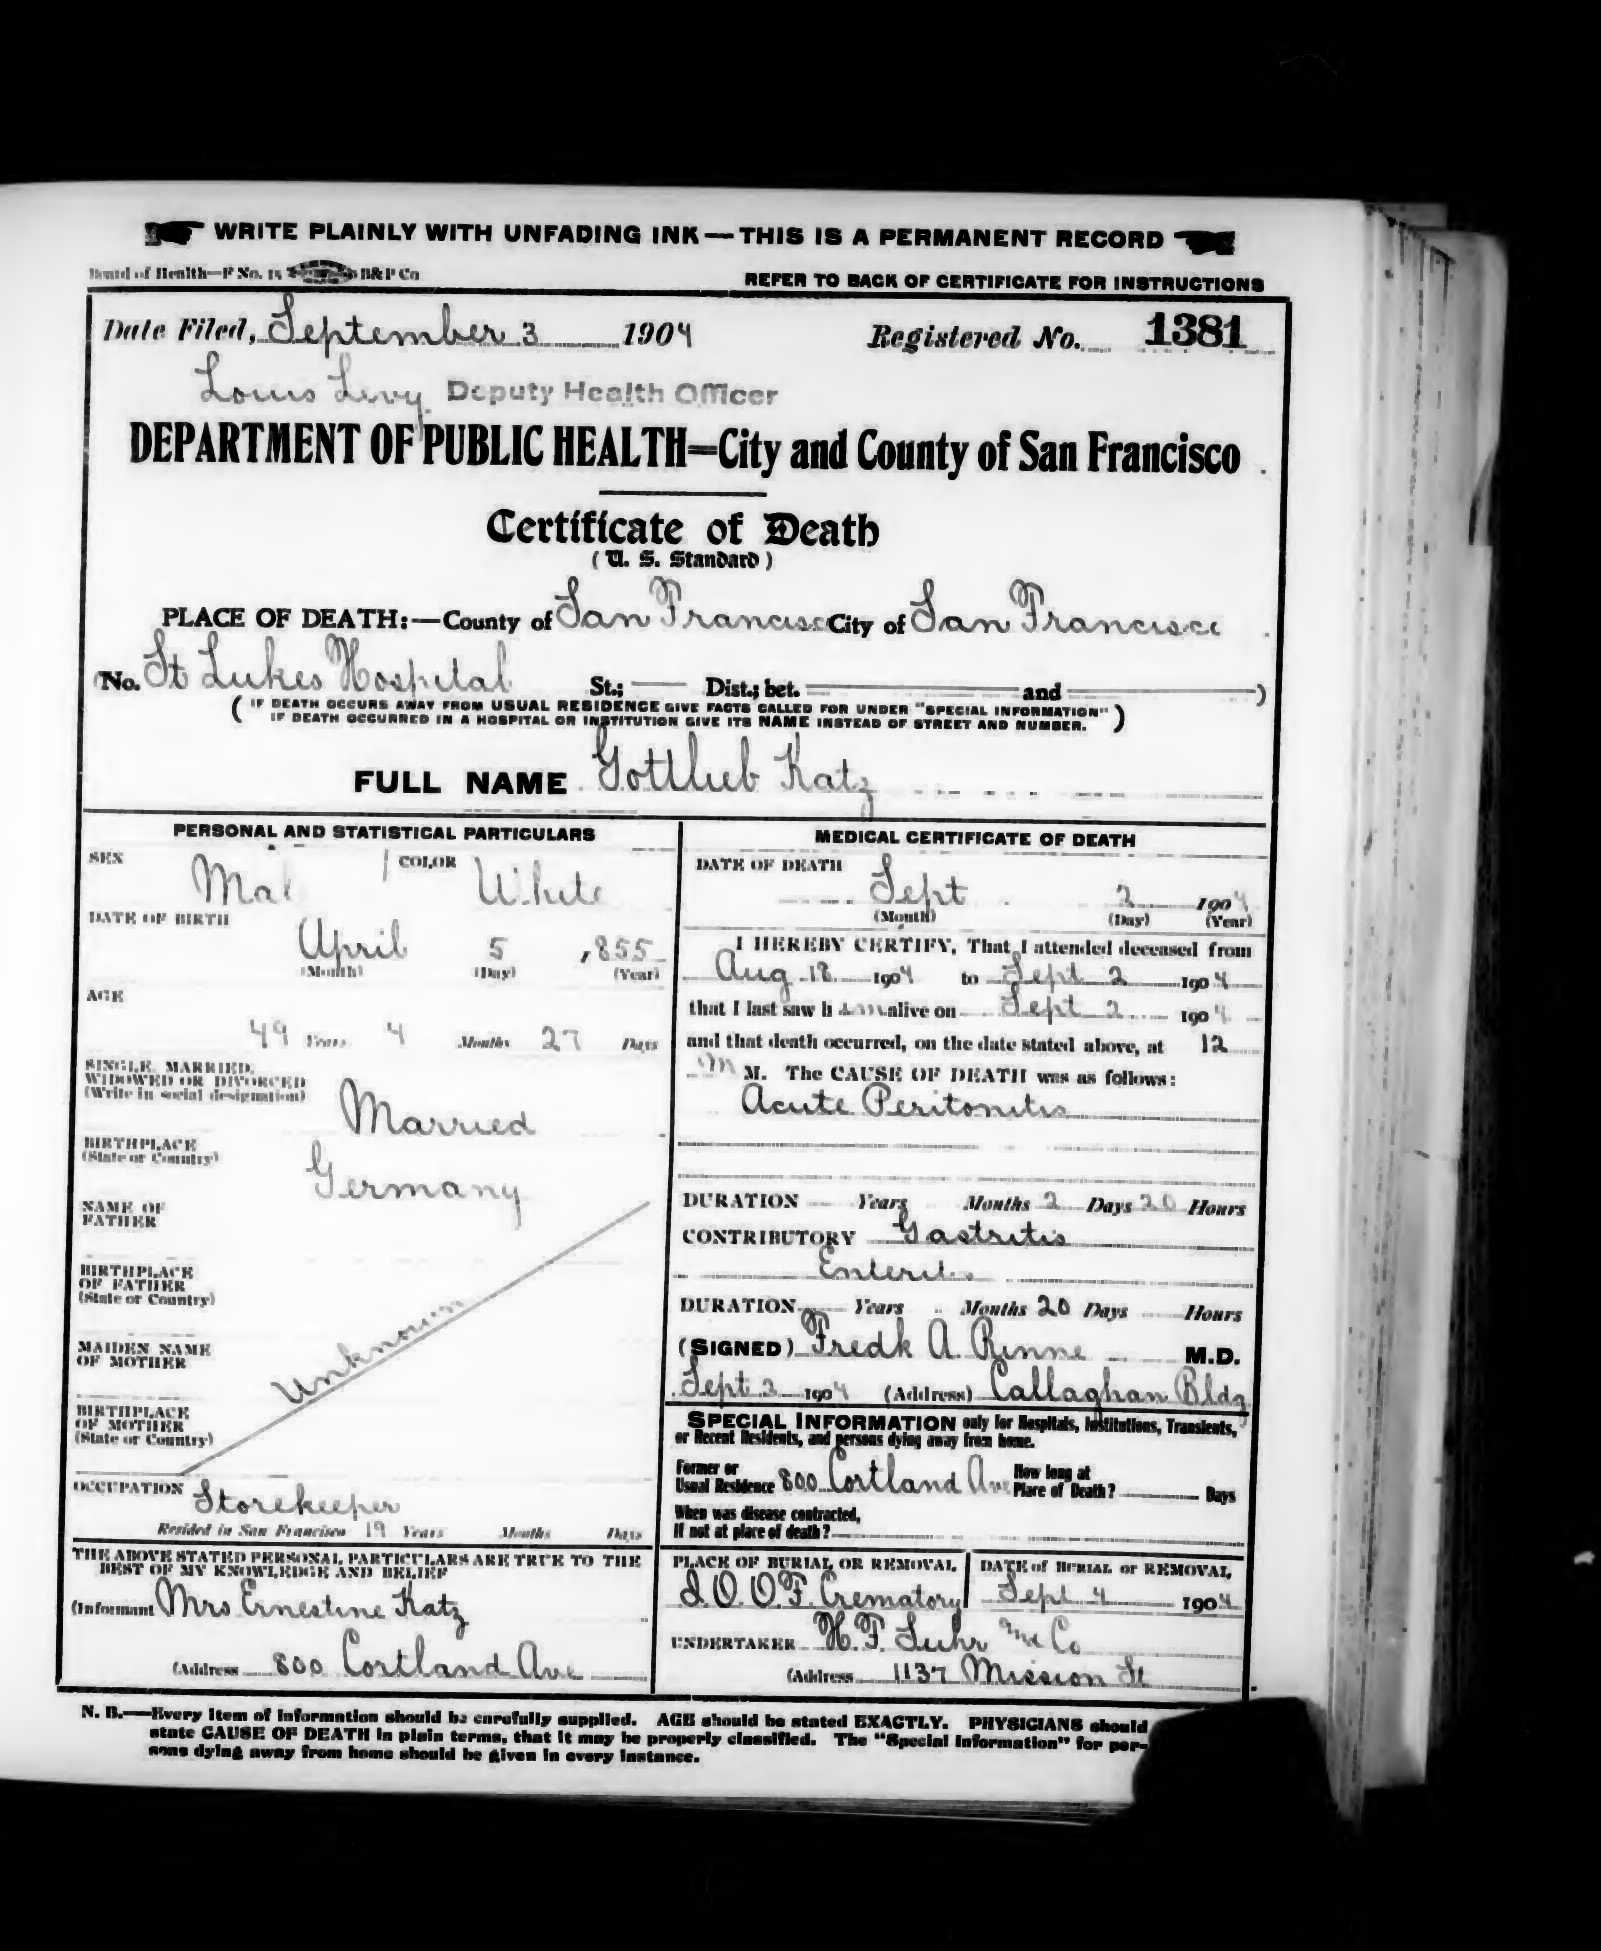 WRITE PLAINLY WITH UNFADING INK — THIS IS A PERMANENT RECORD
Board of Health—F No. 15 B&P Co
REFER TO BACK OF CERTIFICATE FOR INSTRUCTIONS
Date Filed, September 3 1904 Registered No. 1381
Louis Levy Deputy Health Officer
DEPARTMENT OF PUBLIC HEALTH=City and County of San Francisco
Certificate of Death
(U. S. Standard)
PLACE OF DEATH:—County of San Francisco City of San Francisco
(No. St Lukes Hospital St.; Dist.; bet. and )
(IF DEATH OCCURS AWAY FROM USUAL RESIDENCE GIVE FACTS CALLED FOR UNDER "SPECIAL INFORMATION"
IF DEATH OCCURRED IN A HOSPITAL OR INSTITUTION GIVE ITS NAME INSTEAD OF STREET AND NUMBER.)
FULL NAME Gottlieb Katz
PERSONAL AND STATISTICAL PARTICULARS
SEX Mal COLOR White
DATE OF BIRTH
April 5 ,855
(Month) (Day) (Year)
AGE
49 Years 4 Months 27 Days
SINGLE, MARRIED,
WIDOWED OR DIVORCED
(Write in social designation)
Married
BIRTHPLACE
(State or Country)
Germany
NAME OF
FATHER
BIRTHPLACE
OF FATHER
(State or Country)
Unknown
MAIDEN NAME
OF MOTHER
BIRTHPLACE
OF MOTHER
(State or Country)
OCCUPATION Storekeeper
Resided in San Francisco 19 Years Months Days
THE ABOVE STATED PERSONAL PARTICULARS ARE TRUE TO THE
BEST OF MY KNOWLEDGE AND BELIEF
(Informant Mrs Ernestine Katz
(Address 800 Cortland Ave
MEDICAL CERTIFICATE OF DEATH
DATE OF DEATH
Sept 2 1904
(Month) (Day) (Year)
I HEREBY CERTIFY, That I attended deceased from
Aug 18 1904 to Sept 2 1904
that I last saw h im alive on Sept 2 1904
and that death occurred, on the date stated above, at 12
M M. The CAUSE OF DEATH was as follows:
Acute Peritonitis
DURATION Years Months 2 Days 20 Hours
CONTRIBUTORY Gastritis
Enteritis
DURATION Years Months 20 Days Hours
(SIGNED) Fredk A. Rinne M.D.
Sept 3 1904 (Address) Callaghan Bldg
SPECIAL INFORMATION only for Hospitals, Institutions, Transients,
or Recent Residents, and persons dying away from home.
Former or
Usual Residence 800 Cortland Ave
How long at
Place of Death? Days
When was disease contracted,
If not at place of death?
PLACE OF BURIAL OR REMOVAL
I.O.O.F. Crematory
DATE of BURIAL or REMOVAL
Sept 4 1904
UNDERTAKER H. F. Suhr and Co
(Address 1137 Mission St
N. B.—Every item of information should be carefully supplied. AGE should be stated EXACTLY. PHYSICIANS should
state CAUSE OF DEATH in plain terms, that it may be properly classified. The "Special Information" for per-
sons dying away from home should be given in every instance.